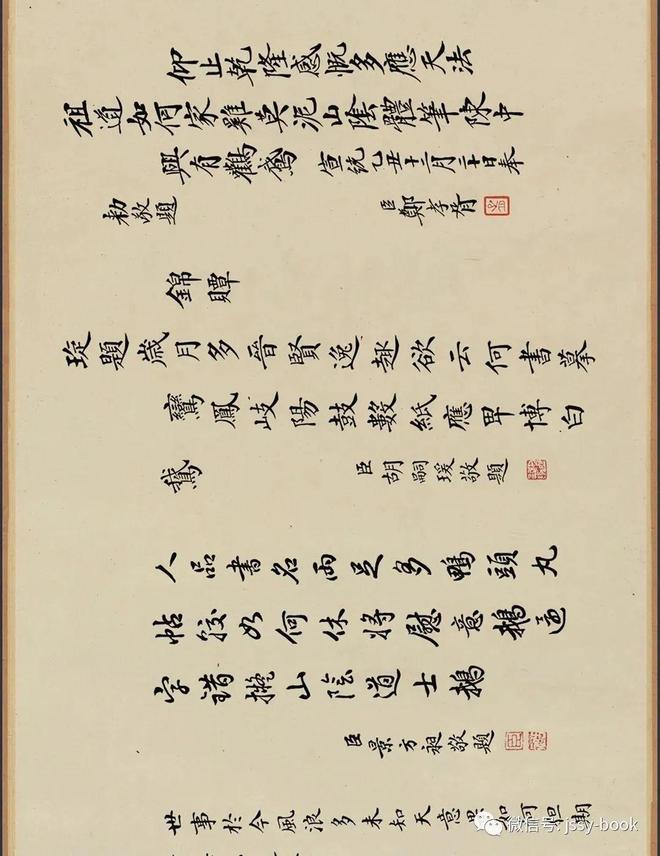 仰止乾隆感慨多應天法
祖道如何家雞莫泥山陰體筆陳中
興有鸛鵞 宣統乙丑十二月二十日奉
敕敬題 臣鄭孝胥
錦贉
琁題歲月多晉賢逸趣欲云何書摹
鸞鳳岐陽鼓數紙應卑博白
鵞 臣胡嗣瑗敬題
人品書名兩足多鴨頭丸
帖較如何休將慰意鵝逼
字錯擬山陰道士鵝
臣景方昶敬題
世事於今風浪多未知天意果如何但期
微信号: jssy-book